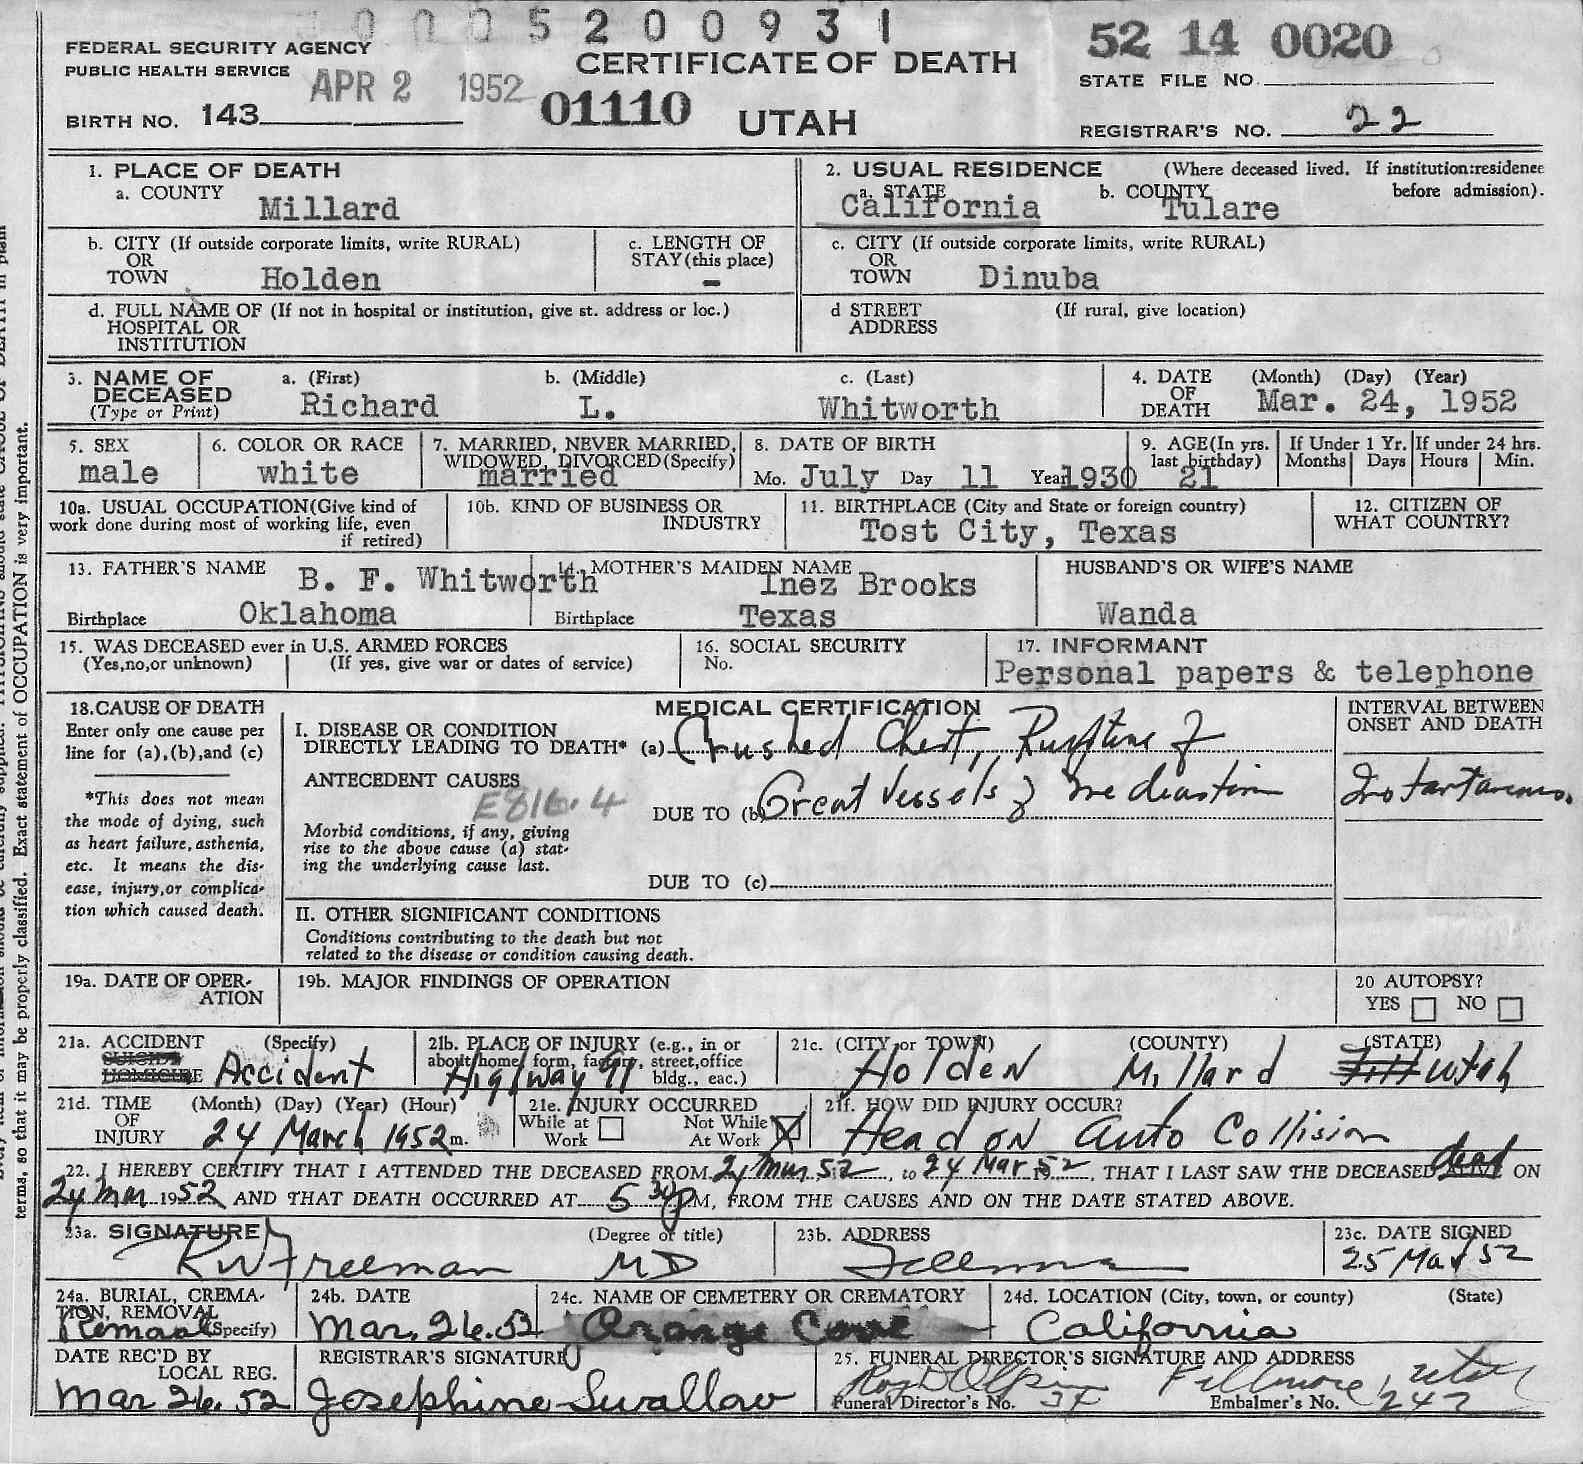 0 0 0 5 2 0 0 9 3 1
FEDERAL SECURITY AGENCY
PUBLIC HEALTH SERVICE
APR 2 1952
BIRTH NO. 143
CERTIFICATE OF DEATH
01110 UTAH
52 14 0020
STATE FILE NO.
REGISTRAR'S NO. 22
1. PLACE OF DEATH
a. COUNTY
Millard
2. USUAL RESIDENCE (Where deceased lived. If institution:residence before admission).
a. STATE
California
b. COUNTY
Tulare
b. CITY (If outside corporate limits, write RURAL)
OR
TOWN Holden
c. LENGTH OF
STAY (this place)
-
c. CITY (If outside corporate limits, write RURAL)
OR
TOWN Dinuba
d. FULL NAME OF (If not in hospital or institution, give st. address or loc.)
HOSPITAL OR
INSTITUTION
d STREET (If rural, give location)
ADDRESS
3. NAME OF
DECEASED
(Type or Print)
a. (First)
Richard
b. (Middle)
L.
c. (Last)
Whitworth
4. DATE
OF
DEATH
(Month) (Day) (Year)
Mar. 24, 1952
5. SEX
male
6. COLOR OR RACE
white
7. MARRIED, NEVER MARRIED,
WIDOWED, DIVORCED (Specify)
married
8. DATE OF BIRTH
Mo. July Day 11 Year 1930
9. AGE (In yrs.
last birthday)
21
If Under 1 Yr.
Months Days
If under 24 hrs.
Hours Min.
10a. USUAL OCCUPATION (Give kind of
work done during most of working life, even
if retired)
10b. KIND OF BUSINESS OR
INDUSTRY
11. BIRTHPLACE (City and State or foreign country)
Tost City, Texas
12. CITIZEN OF
WHAT COUNTRY?
13. FATHER'S NAME
B. F. Whitworth
Birthplace Oklahoma
14. MOTHER'S MAIDEN NAME
Inez Brooks
Birthplace Texas
HUSBAND'S OR WIFE'S NAME
Wanda
15. WAS DECEASED ever in U.S. ARMED FORCES
(Yes,no,or unknown) (If yes, give war or dates of service)
16. SOCIAL SECURITY
No.
17. INFORMANT
Personal papers & telephone
18. CAUSE OF DEATH
Enter only one cause per
line for (a),(b),and (c)
*This does not mean
the mode of dying, such
as heart failure, asthenia,
etc. It means the dis-
ease, injury,or complica-
tion which caused death.
MEDICAL CERTIFICATION
I. DISEASE OR CONDITION
DIRECTLY LEADING TO DEATH* (a) Crushed Chest, Rupture of
ANTECEDENT CAUSES
E816.4
DUE TO (b) Great Vessels of mediastinum
Morbid conditions, if any, giving
rise to the above cause (a) stat-
ing the underlying cause last.
DUE TO (c)
INTERVAL BETWEEN
ONSET AND DEATH
Instantaneous.
II. OTHER SIGNIFICANT CONDITIONS
Conditions contributing to the death but not
related to the disease or condition causing death.
19a. DATE OF OPER-
ATION
19b. MAJOR FINDINGS OF OPERATION
20 AUTOPSY?
YES NO
21a. ACCIDENT (Specify)
SUICIDE
HOMICIDE
Accident
21b. PLACE OF INJURY (e.g., in or
about home, form, factory, street,office
bldg., eac.)
Highway 91
21c. (CITY or TOWN) (COUNTY) (STATE)
Holden Millard Utah
21d. TIME (Month) (Day) (Year) (Hour)
OF
INJURY 24 March 1952 m.
21e. INJURY OCCURRED
While at Work
Not While At Work X
21f. HOW DID INJURY OCCUR?
Head on Auto Collision
22. I HEREBY CERTIFY THAT I ATTENDED THE DECEASED FROM 24 Mar. 52, to 24 Mar. 52, THAT I LAST SAW THE DECEASED dead ON
24 Mar 1952 AND THAT DEATH OCCURRED AT 5 30 P M, FROM THE CAUSES AND ON THE DATE STATED ABOVE.
23a. SIGNATURE (Degree or title)
R W Freeman MD
23b. ADDRESS
Fillmore
23c. DATE SIGNED
25 Mar 52
24a. BURIAL, CREMA-
TION, REMOVAL
(Specify)
Removal
24b. DATE
Mar. 26. 52
24c. NAME OF CEMETERY OR CREMATORY
Orange Cove
24d. LOCATION (City, town, or county) (State)
California
DATE REC'D BY
LOCAL REG.
Mar 26. 52
REGISTRAR'S SIGNATURE
Josephine Swallow
25. FUNERAL DIRECTOR'S SIGNATURE AND ADDRESS
Roy D Olpin Fillmore, Utah
Funeral Director's No. 37 Embalmer's No. 247
terms, so that it may be properly classified. Exact statement of OCCUPATION is very important.